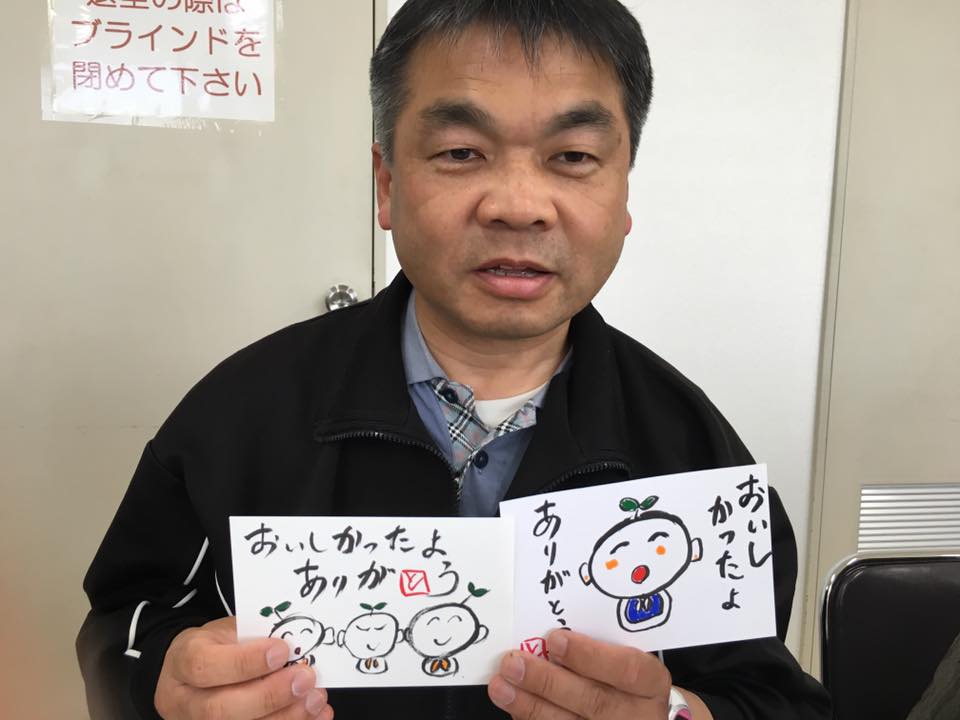 退室の際は
ブラインドを
閉めて下さい
おいしかったよ
ありがとう
おいし
かったよ
ありがとう
と